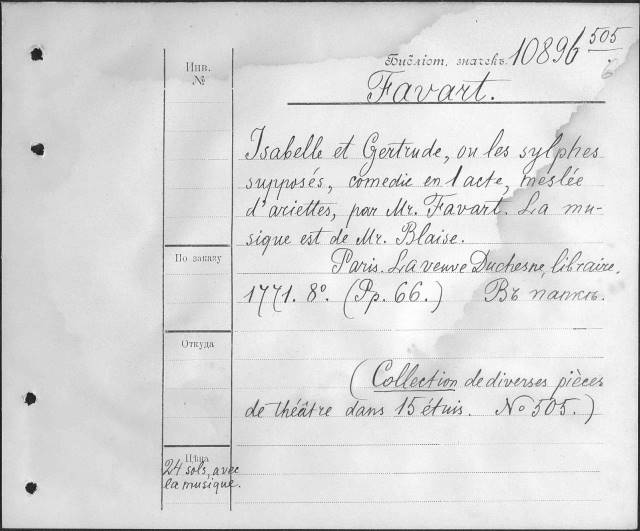 Библіот. значекъ 10896 505/6
Инв.
№
Favart.
Isabelle et Gertrude, ou les sylphes
supposés, comedie en 1 acte, meslée
d'ariettes, par Mr. Favart. La mu-
sique est de Mr. Blaise.
По заказу
Paris. La veuve Duchesne, libraire.
1771. 8º. (Pp. 66.) Въ папкѣ.
Откуда
(Collection de diverses pièces
de théâtre dans 15 étuis. No 505.)
Цѣна
24 sols, avec
la musique.